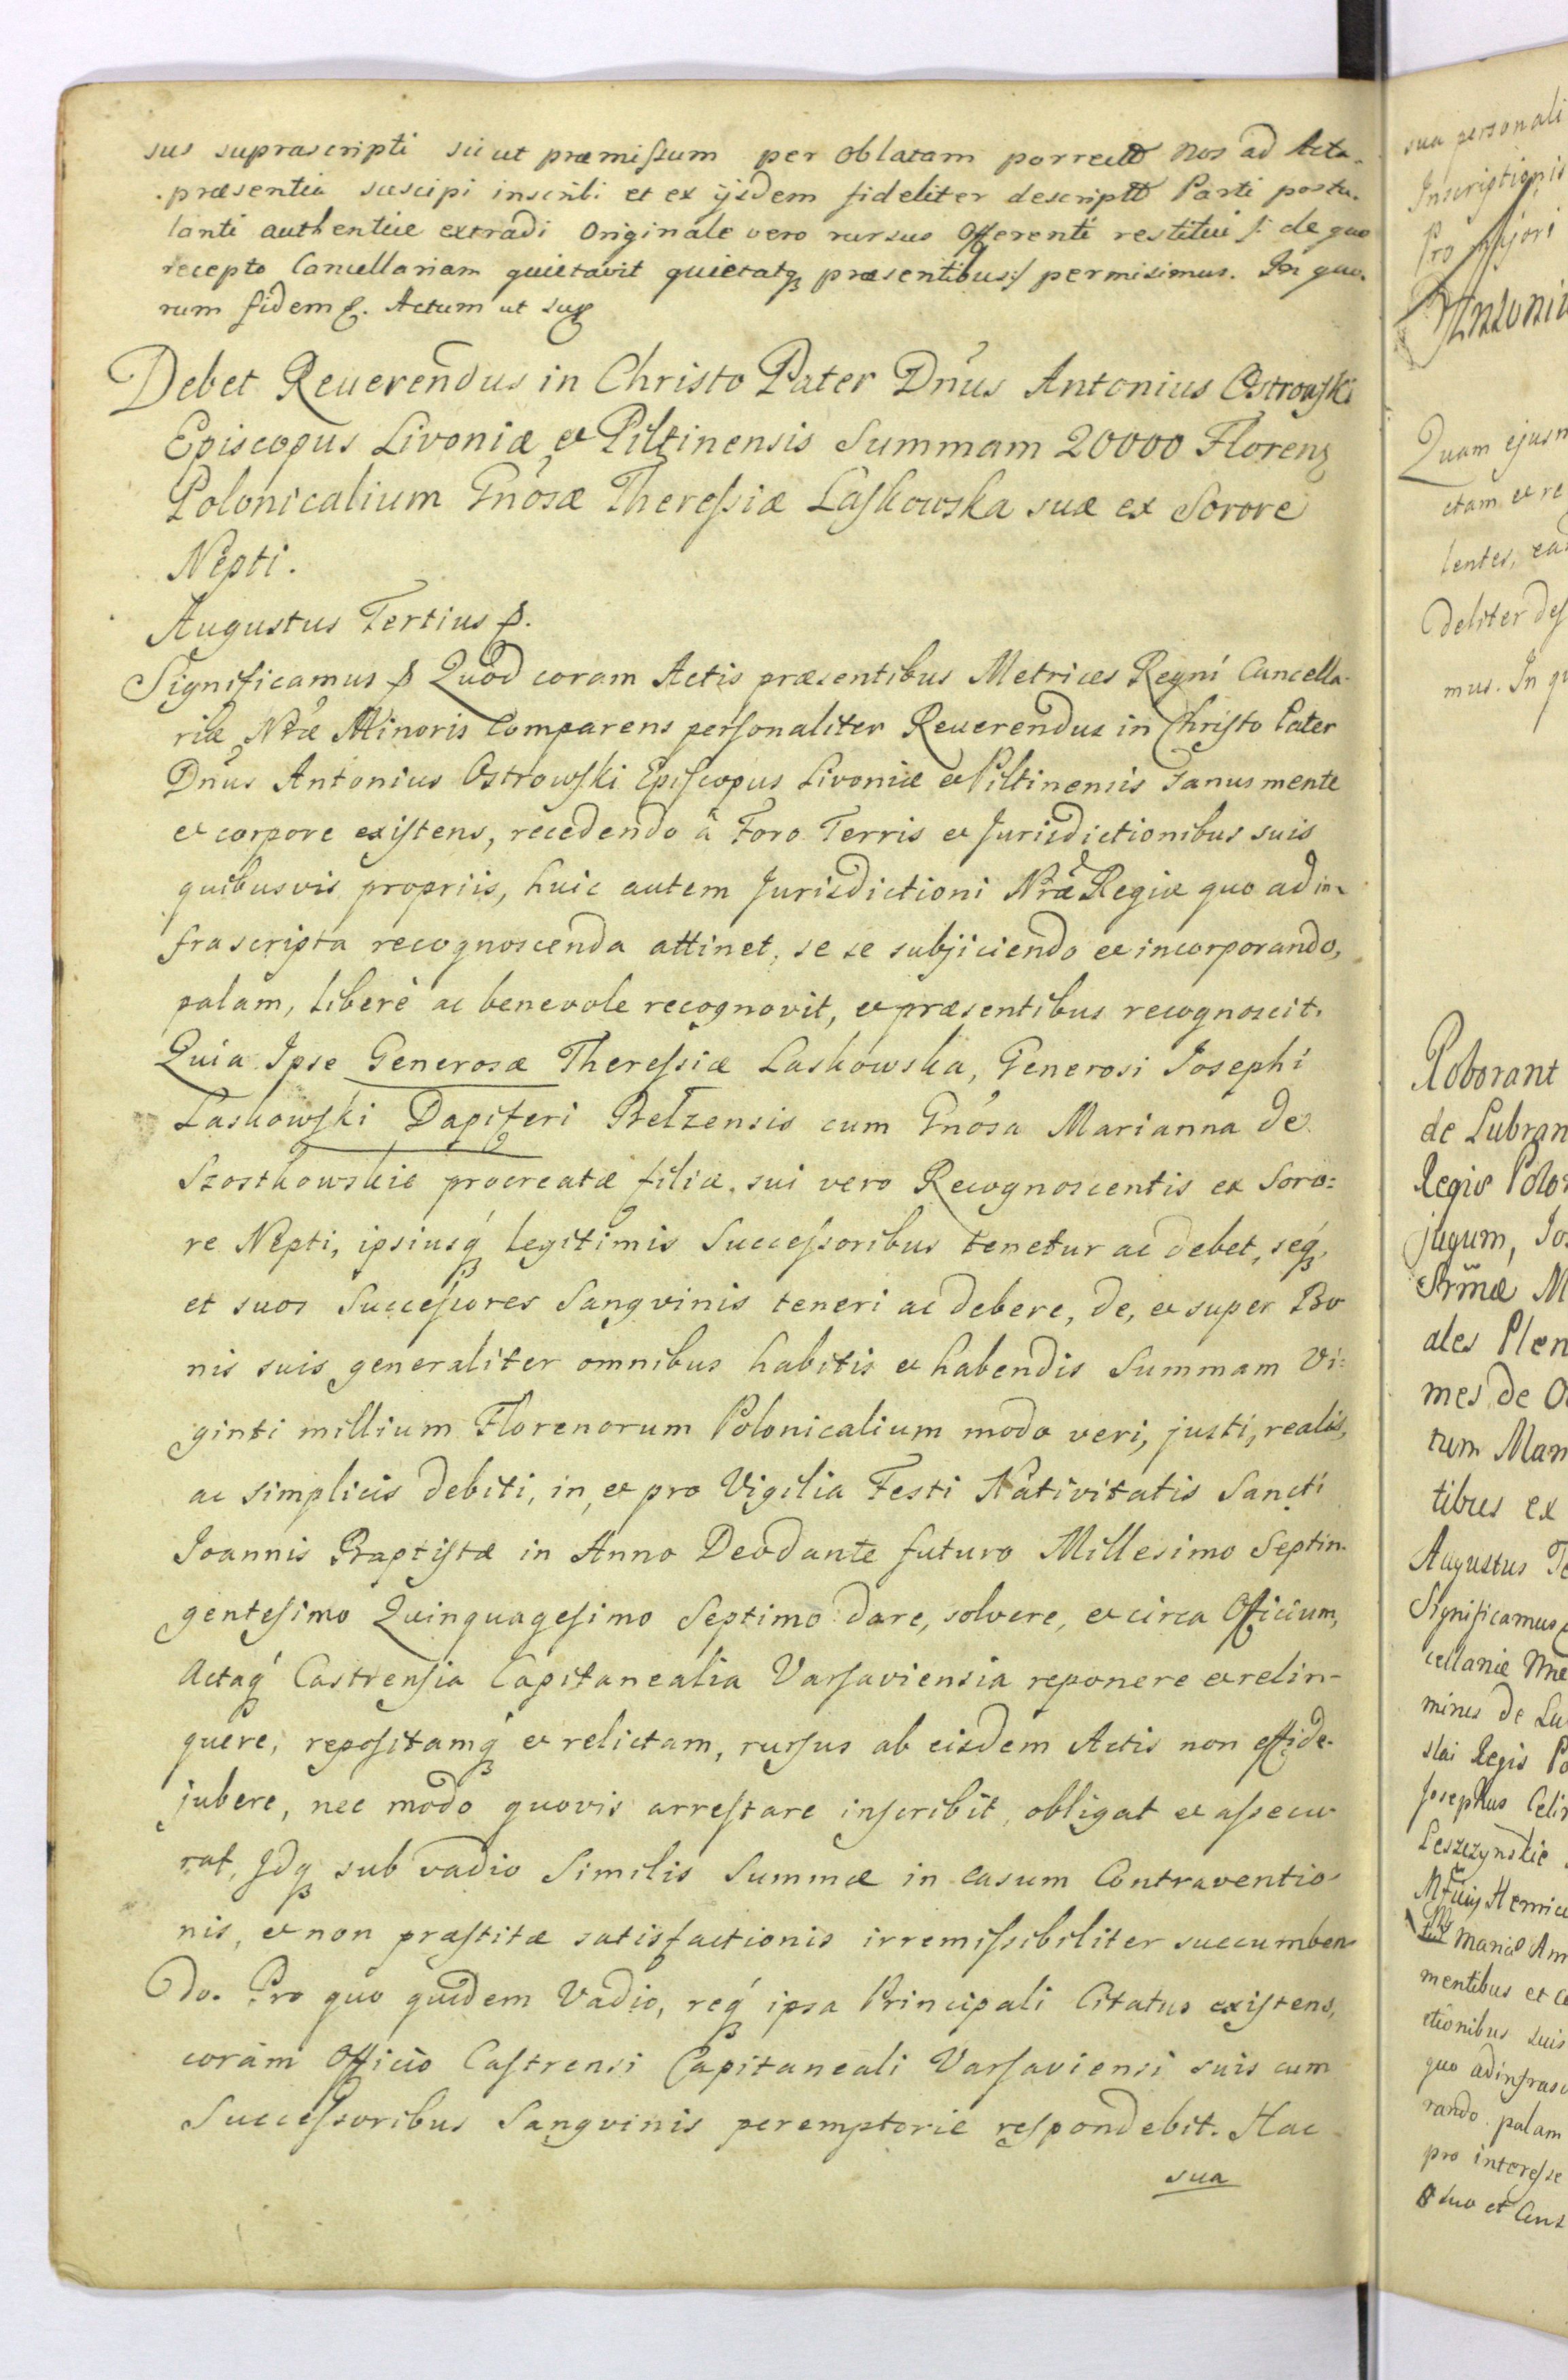 sus suprascripti sicut præmissum per oblatam porrecto nos ad Acta
præsentia suscipi inscribi et ex ijsdem fideliter descripto Parti postu-
lanti authentice extradi Originale vero rursus Offerenti restitui /: de quo
recepto Cancellariam quietavit quietatq præsentibus:/ permisimus. In quo-
rum fidem &. Actum ut sup
Debet Reuerendus in Christo Pater Dnus Antonius Ostrowski
Episcopus Livoniæ et Piltinensis Summam 20000 Floren
Polonicalium Gnosæ Theressiæ Laskowska suæ ex Sorore
Nepti.
Augustus Tertius &.
Significamus & Quod coram Actis præsentibus Metrices Regni Cancella-
riæ Nræ Minoris Comparens personaliter Reuerendus in Christo Pater
Dnus Antonius Ostrowski Episcopus Livoniæ et Piltinensis sanus mente
et corpore existens, recedendo à Foro Terris et Jurisdictionibus suis
quibusvis propriis, huic autem Jurisdictioni Nræ Regiæ quo ad in-
frascripta recognoscenda attinet, se se subjiciendo et incorporando,
palam, liberè ac benevole recognovit, et præsentibus recognoscit.
Quia Ipse Generosæ Theressiæ Laskowska, Generosi Josephi
Laskowski Dapiferi Belzensis cum Gnosa Marianna de
Szostkowskie procreatæ filiæ, sui vero Recognoscentis ex Soro=
re Nepti, ipsiusq legitimis Successoribus tenetur ac debet, seq
et suos Successores Sangvinis teneri ac debere, de, et super Bo
nis suis generaliter omnibus habitis et habendis Summam Vi=
ginti millium Florenorum Polonicalium modo veri, justi, realis,
ac simplicis debiti, in, et pro Vigilia Festi Nativitatis Sancti
Joannis Baptistæ in Anno Deodante futuro Millesimo Septin-
gentesimo Quinquagesimo Septimo dare, solvere, et circa Officium,
Actaq Castrensia Capitanealia Varsaviensia reponere et relin-
quere, repositamq et relictam, rursus ab eisdem Actis non effide-
jubere, nec modo quovis arrestare inscribit, obligat et assecu
rat, Idq sub vadio Similis Summæ in casum Contraventio-
nis, et non præstitæ satisfactionis irremissibiliter succumben
do. Pro quo quidem Vadio, req ipsa Principali Citatus existens,
coram Officio Castrensi Capitaneali Varsaviensi suis cum
Successoribus Sangvinis peremptorie respondebit. Hac
sua
sua personali
Inscriptionis
Pro majori
Quam ejusm
ctam et re
lentes, ea
deliter des
mus. In qu
Roborant
de Lubran
Regis Polo
jugum, Jo
Srmæ M
ales Plen
mes de O
tum Man
tibus ex
Augustus Te
Significamus
cellariæ
mines de Lu
slai Regis Po
Josephus Celi
Leszczynskie
Henric
Mariæ Am
mentibus et co
ctionibus suis
quo ad infrasc
rando palam
pro interesse
suo et Cons